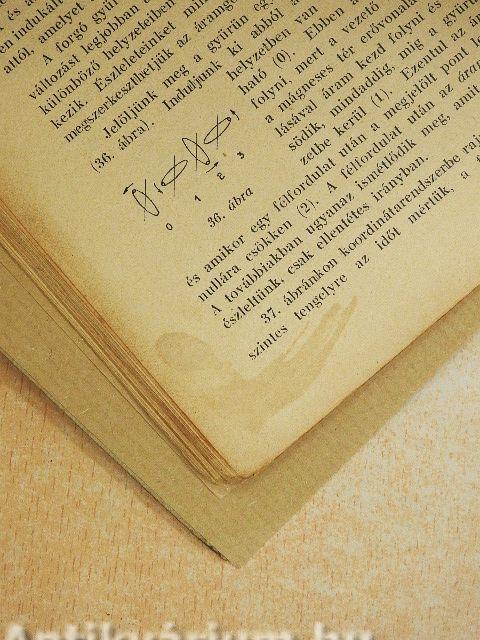 és az
en indukált
attól, amelyet
A forgó gyű
változást legjobban
különböző helyzeteiben
kezik. Észleleteinket
megszerkeszthetjük az áramgö
Jelöljünk meg a gyűrün egy
(36. ábra). Induljunk ki abból a helyzetben van
ható (0). Ebben
folyni, mert a vezető
a mágneses tér erővonala
lásával áram kezd folyni és
södik, mindaddig, míg a gyűrű
zetbe kerül (1). Ezentul az ár
0 1 2 3
36. ábra
egy félfordulat után a megjelölt pont
és amikor
nullára csökken (2). A félfordulat után az
A továbbiakban ugyanaz ismétlődik meg, amit
észleltünk, csak ellentétes irányban.
37. ábránkon koordinátarendszerbe raj
szintes tengelyre az időt mértük, a
Antikvárium.hu